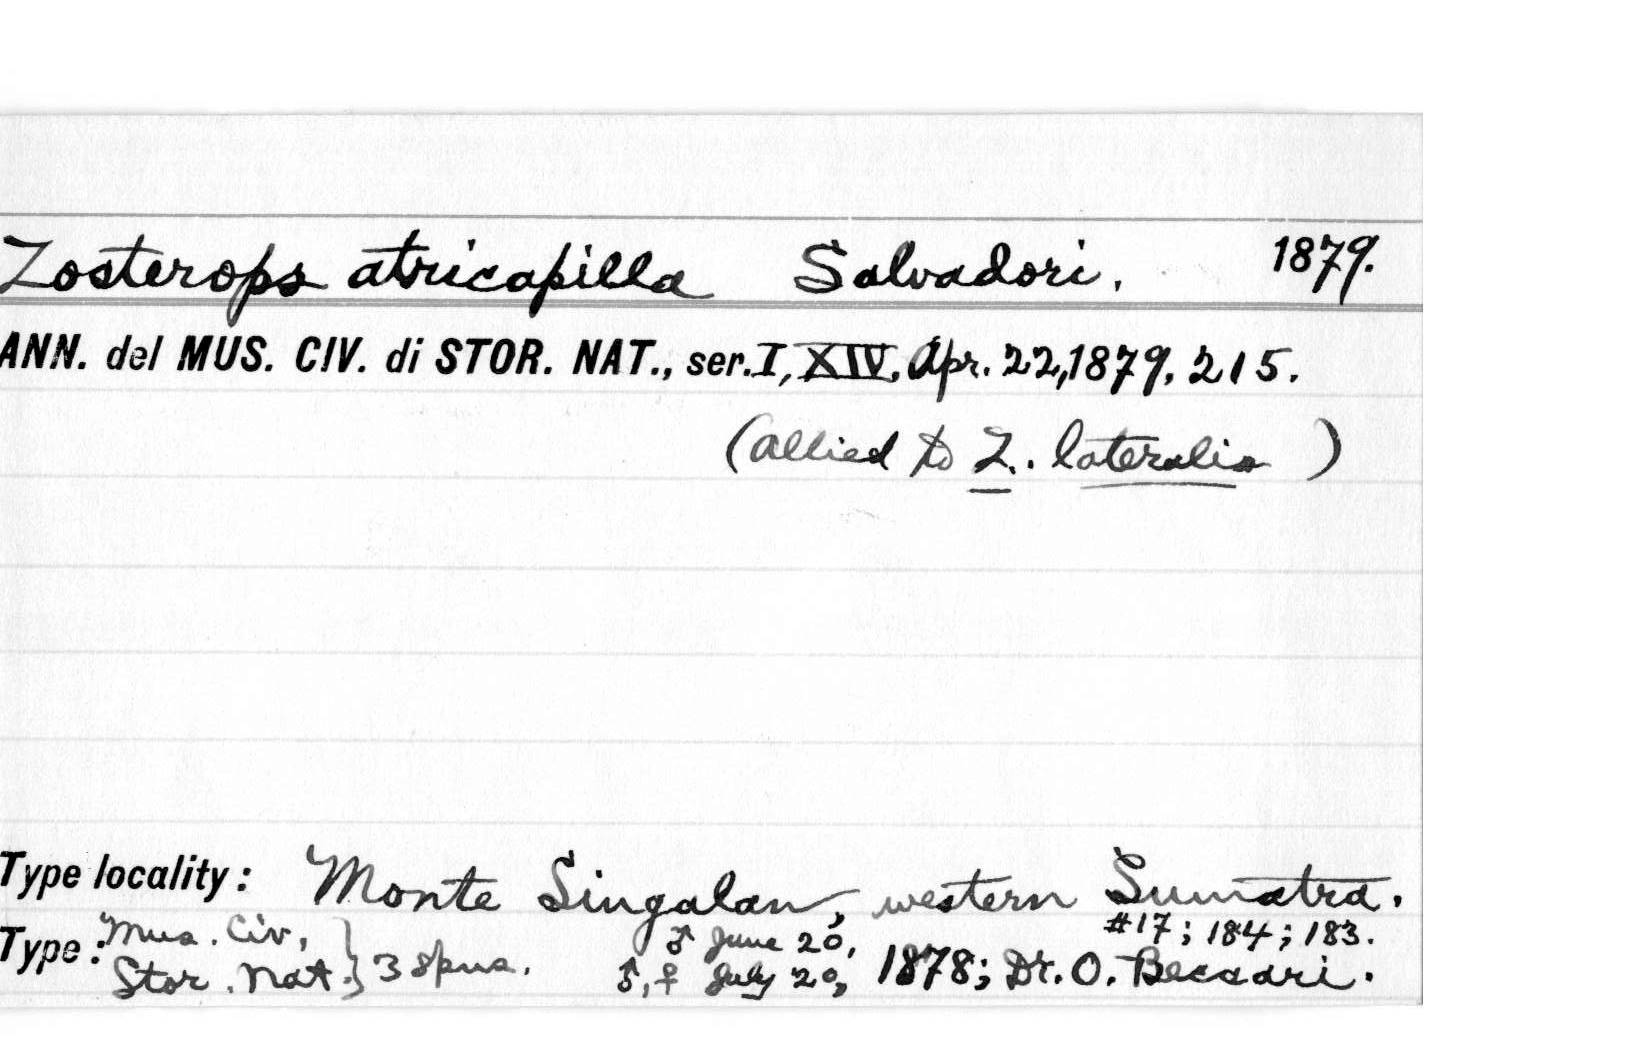 Zosterops atricapilla Salvadori. 1879.
ANN. del MUS. CIV. di STOR. NAT., ser. I, XIV, Apr. 22, 1879, 215.
(allied to Z. lateralis )
Type locality: Monte Singalan, western Sumatra.
Type: Mus. Civ, ♂ June 20, #17; 184; 183.
Stor. Nat. } 3 spns. ♂, ♀ July 20, 1878; Dr. O. Beccari.